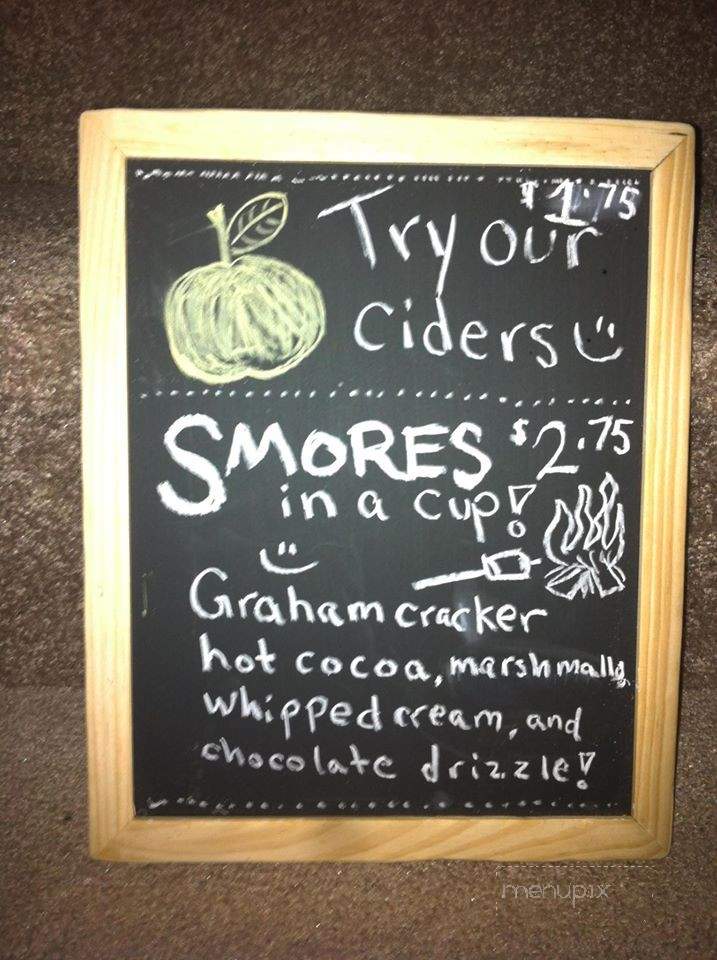 $1.75
Try our
Ciders
SMORES $2.75
in a cup!
Graham cracker
hot cocoa, marshmallo
whipped cream, and
chocolate drizzle!
menupix